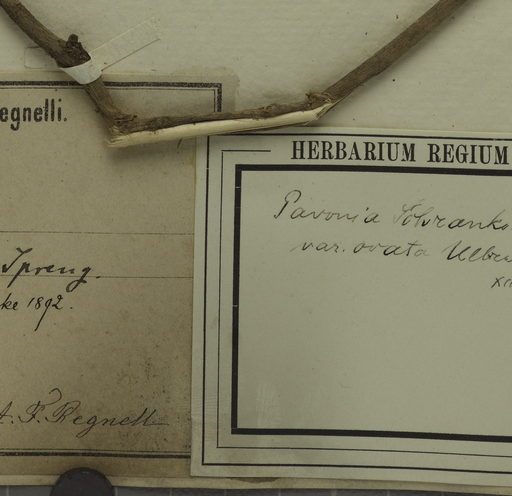 egnelli.
Spreng.
ke 1892.
A. F. Regnell
HERBARIUM REGIUM
Pavonia Schranks
var. ovata Ulbr